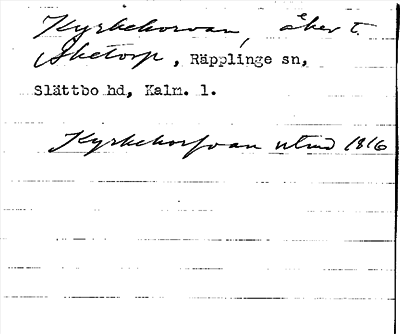 Kyrkekorvan, åker t.
Åketorp, Räpplinge sn,
Slättbo hd, Kalm. l.
Kyrkekorfvan utmd 1816